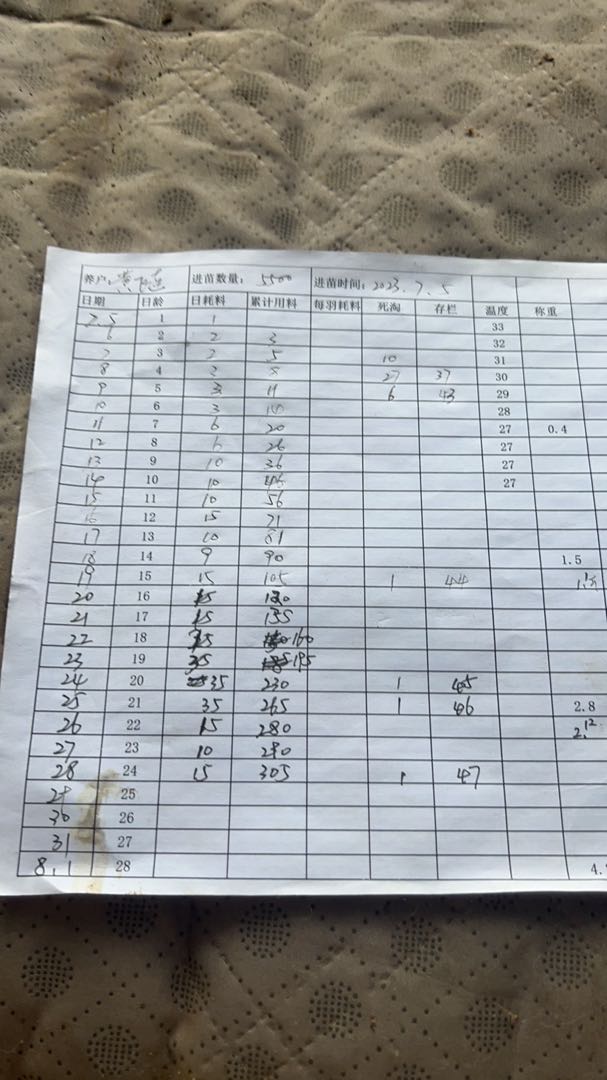 养户: 进苗数量: 5500 进苗时间: 2023.7.5
日期 日龄 日耗料 累计用料 每羽耗料 死淘 存栏 温度 称重
7.5 1 1 33
6 2 2 3 32
7 3 2 5 10 31
8 4 3 8 27 37 30
9 5 3 11 6 43 29
10 6 3 14 28
11 7 6 20 27 0.4
12 8 6 26 27
13 9 10 36 27
14 10 10 46 27
15 11 10 56
16 12 15 71
17 13 10 81
18 14 9 90 1.5
19 15 15 105 1 44
20 16 15 120
21 17 15 135
22 18 25 160
23 19 35 195
24 20 35 230 1 45
25 21 35 265 1 46 2.8
26 22 15 280
27 23 10 290
28 24 15 305 1 47
29 25
30 26
31 27
8.1 28